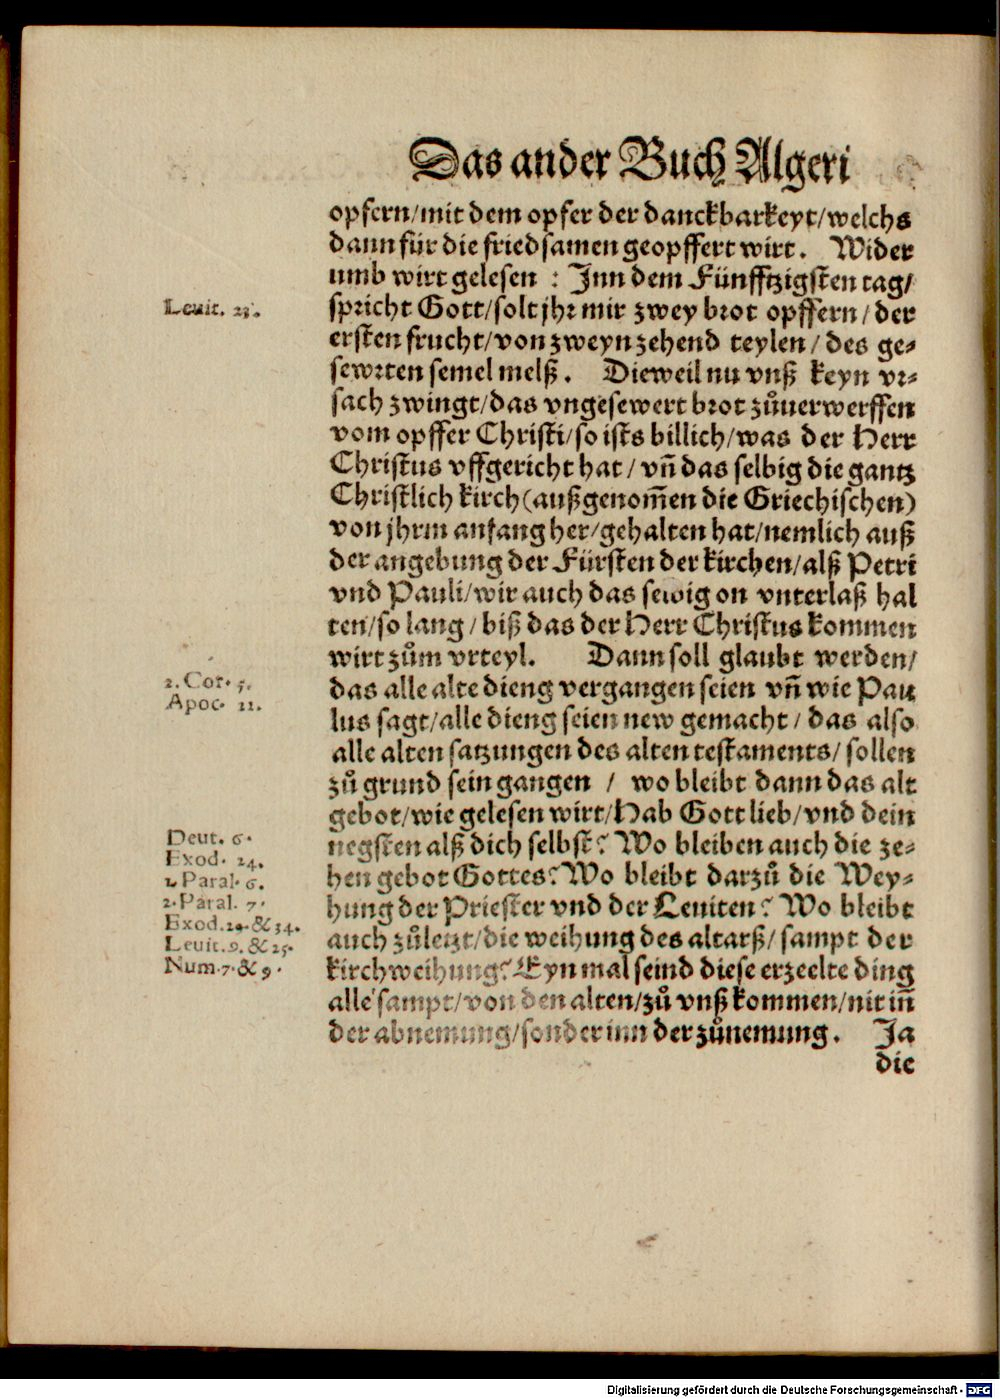 Das ander Buch Algeri
opfern/mit dem opfer der danckbarkeyt/welchs
dann für die friedsamen geopffert wirt. Wider
umb wirt gelesen : Inn dem Fünfftzigsten tag/
Leuit. 23.
spricht Gott/solt jhr mir zwey brot opffern/der
ersten frucht/von zweyn zehend teylen/des ge-
sewrten semel melß. Dieweil nu vnß keyn vr-
sach zwingt/das vngesewert brot zůuerwerffen
vom opffer Christi/so ists billich/was der Herr
Christus vffgericht hat/vñ das selbig die gantz
Christlich kirch(außgenom̃en die Griechischen)
von jhrm anfang her/gehalten hat/nemlich auß
der angebung der Fürsten der kirchen/alß Petri
vnd Pauli/wir auch das sewig on vnterlaß hal
ten/so lang/biß das der Herr Christus kommen
wirt zům vrteyl. Dann soll glaubt werden/
2. Cor. 5.
das alle alte dieng vergangen seien vñ wie Pau
Apoc. 21.
lus sagt/alle dieng seien new gemacht/das also
alle alten satzungen des alten testaments/sollen
zů grund sein gangen / wo bleibt dann das alt
gebot/wie gelesen wirt/Hab Gott lieb/vnd dein
Deut. 6.
negsten alß dich selbst? Wo bleiben auch die ze-
Exod. 24.
hen gebot Gottes? Wo bleibt darzů die Wey-
1. Paral. 6.
2. Paral. 7.
hung der Priester vnd der Leuiten? Wo bleibt
Exod. 29. & 34.
auch zůletzt/die weihung des altarß/sampt der
Leuit. 9. & 25.
kirchweihung? Eyn mal seind diese erzeelte ding
Num. 7. & 9.
alle sampt/von den alten/zů vnß kommen/nit iñ
der abnemung/sonder inn der zůnemung. Ja
die
Digitalisierung gefördert durch die Deutsche Forschungsgemeinschaft - DFG